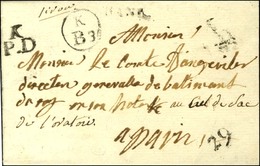 K
P.D
K
B3
Monsieur
Monsieur Le Comte Dangeviler
directeur generalle de batiment
du roy en son hotel au Cul de Sac
de l'oratoire
a paris
29